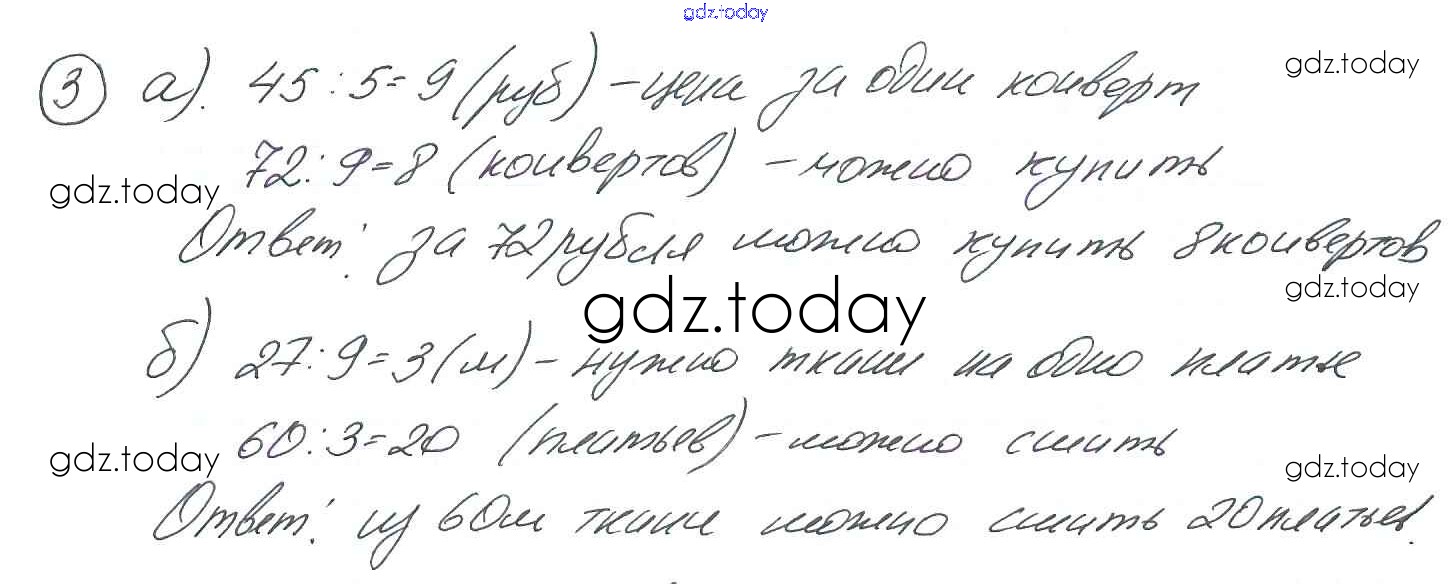 gdz.today
3 а). 45 : 5 = 9 (руб) - цена за один конверт
gdz.today
72 : 9 = 8 (конвертов) - можно купить
gdz.today
Ответ: за 72 рубля можно купить 8 конвертов
gdz.today
gdz.today
б) 27 : 9 = 3 (м) - нужно ткани на одно платье
60 : 3 = 20 (платьев) - можно сшить
gdz.today
gdz.today
Ответ: из 60м ткани можно сшить 20 платьев.